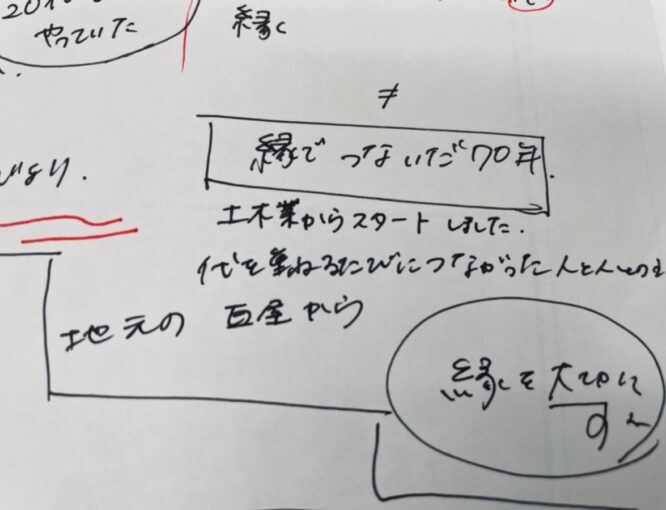 201
やっていた
縁
≠
縁でつないだ70年.
土木業からスタートしました.
代を重ねるたびにつながった人と人との
地元の 瓦屋から
縁を大切に
する